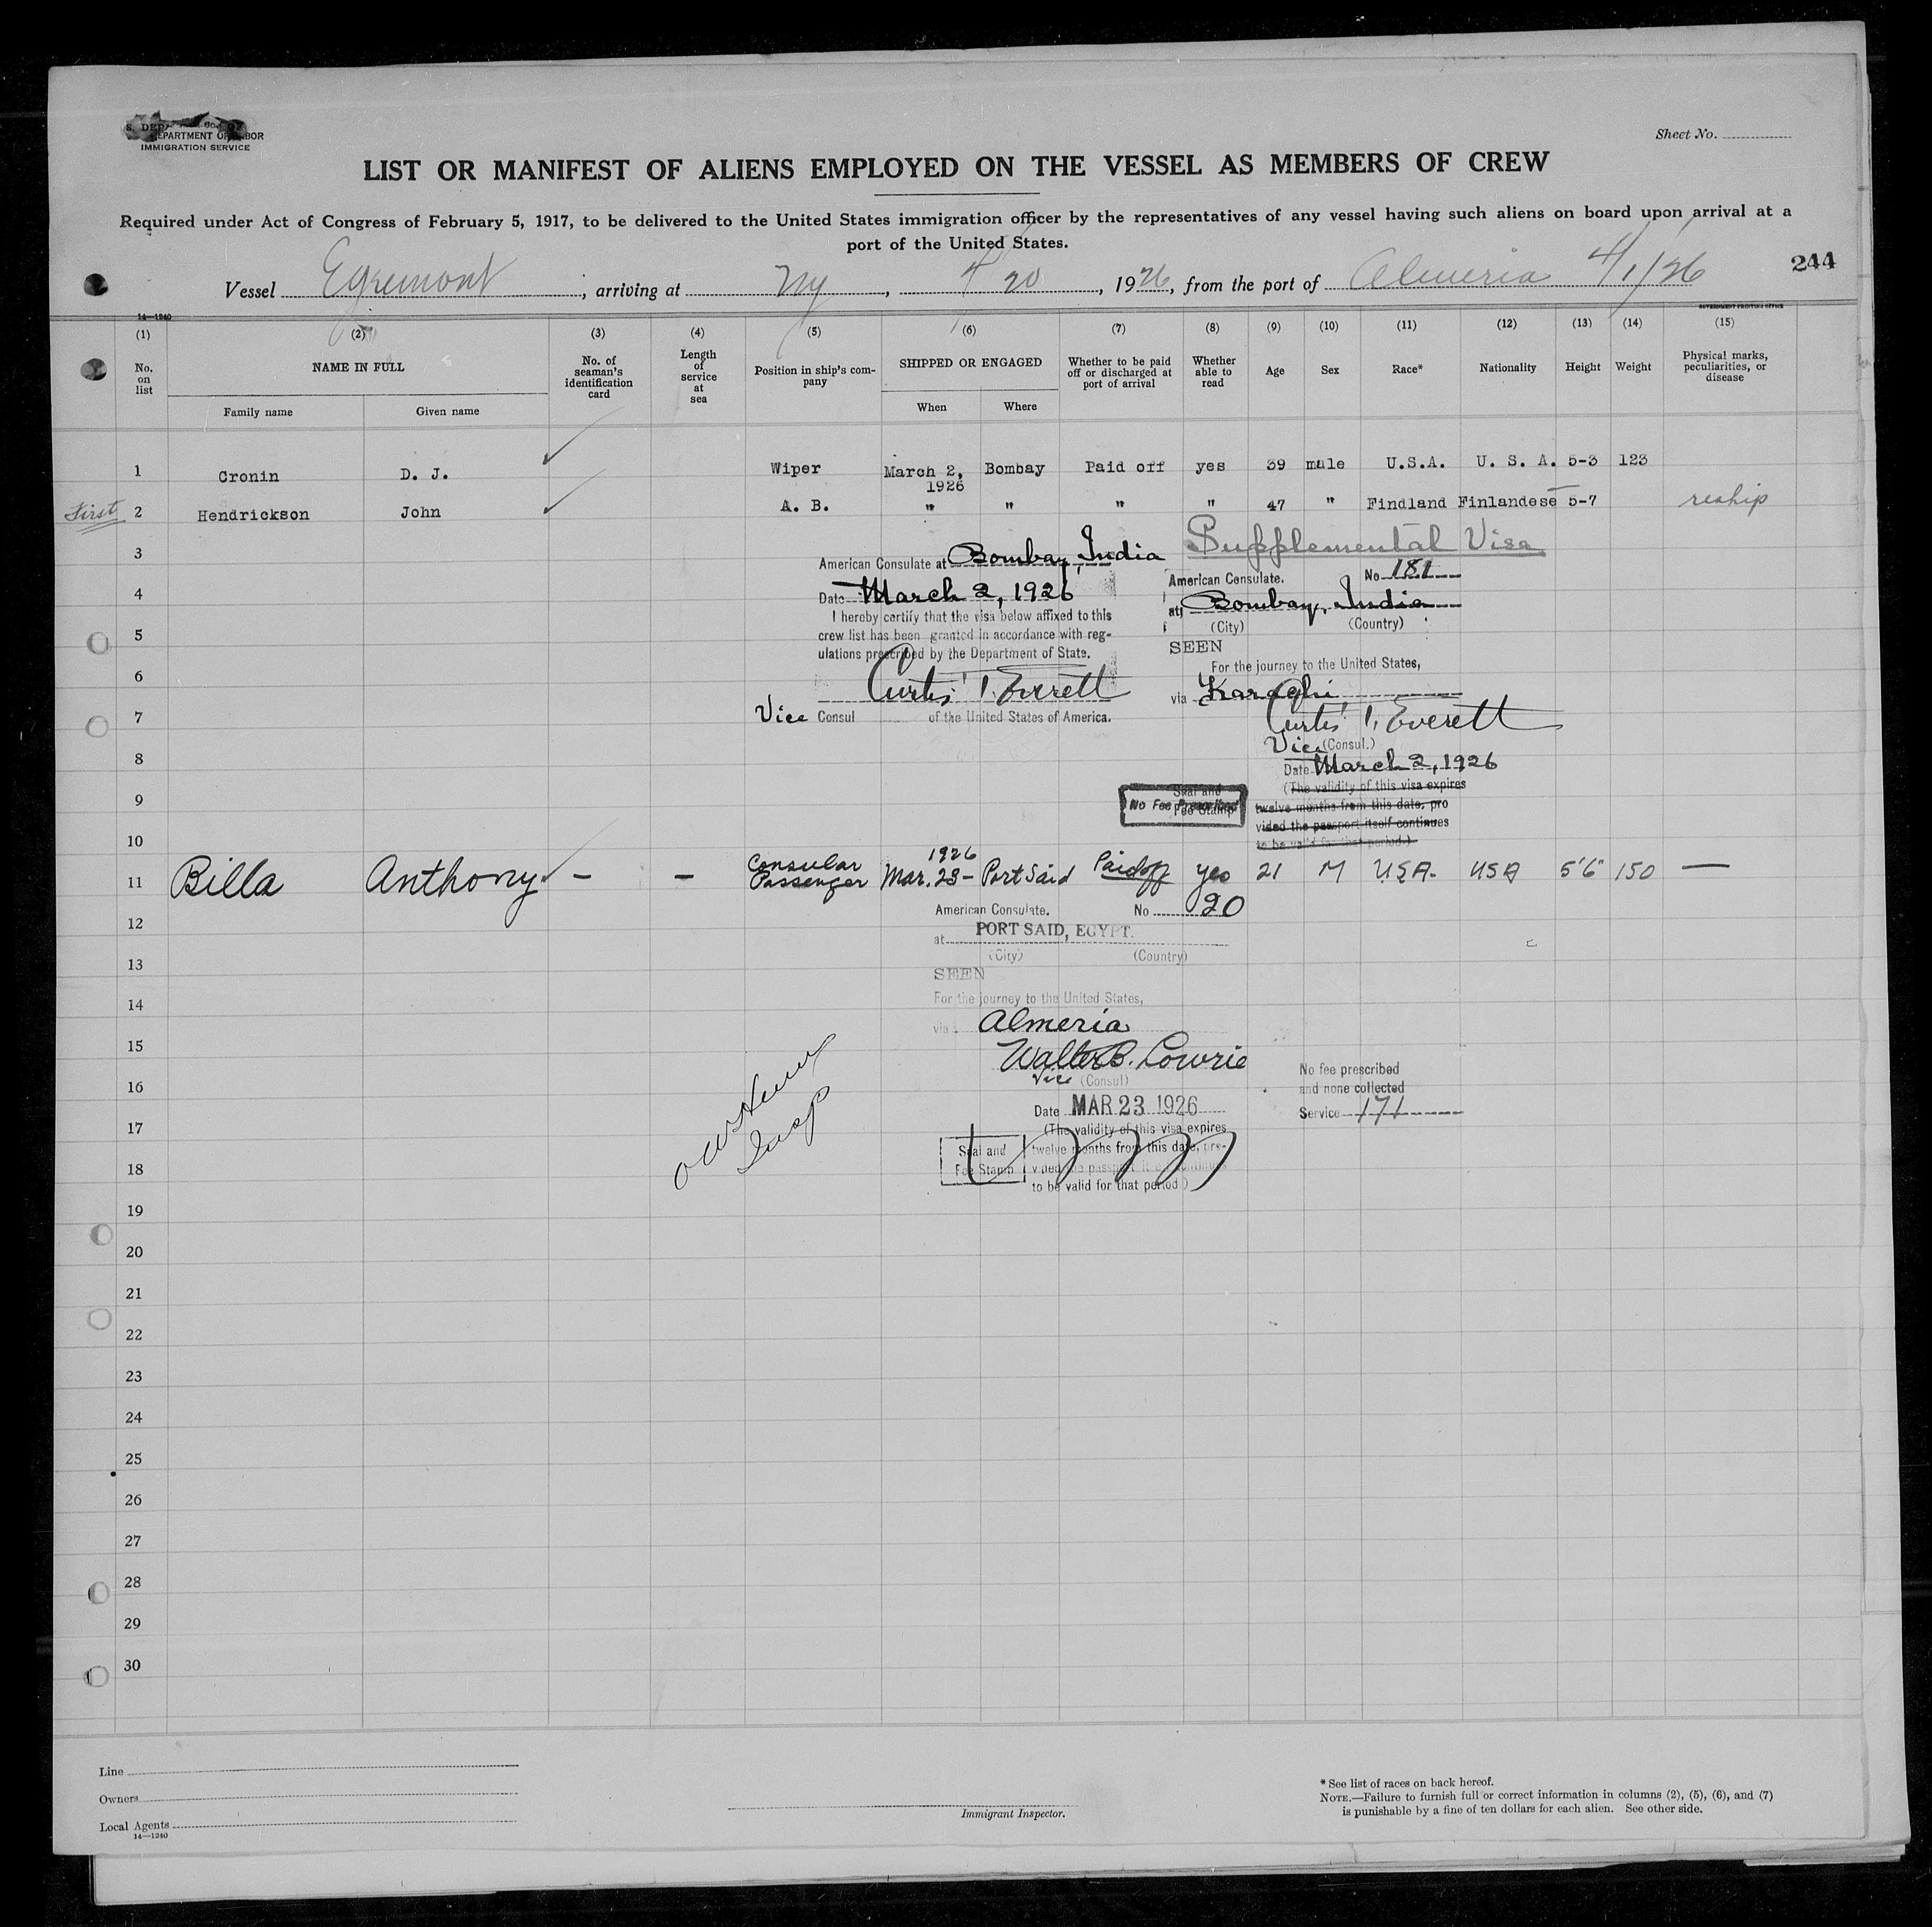 DEPARTMENT OF LABOR
IMMIGRATION SERVICE
Sheet No.
LIST OR MANIFEST OF ALIENS EMPLOYED ON THE VESSEL AS MEMBERS OF CREW
Required under Act of Congress of February 5, 1917, to be delivered to the United States immigration officer by the representatives of any vessel having such aliens on board upon arrival at a
port of the United States.
244
Vessel Egremont, arriving at Ny, 4/20, 1926, from the port of Almeria 4/1/26
14—1240
GOVERNMENT PRINTING OFFICE
(1) (2) (3) (4) (5) (6) (7) (8) (9) (10) (11) (12) (13) (14) (15)
No. on list
NAME IN FULL
Family name Given name
No. of seaman's identification card
Length of service at sea
Position in ship's company
SHIPPED OR ENGAGED
When Where
Whether to be paid off or discharged at port of arrival
Whether able to read
Age
Sex
Race*
Nationality
Height
Weight
Physical marks, peculiarities, or disease
1 Cronin D. J. Wiper March 2, 1926 Bombay Paid off yes 39 male U.S.A. U. S. A. 5-3 123
First 2 Hendrickson John A. B. " " " " 47 " Findland Finlandese 5-7 reship
3
American Consulate at Bombay, India
Supplemental Visa
American Consulate. No 181
4
Date March 2, 1926
at Bombay, India
I hereby certify that the visa below affixed to this
(City) (Country)
5
crew list has been granted in accordance with reg-
SEEN
ulations prescribed by the Department of State.
For the journey to the United States,
6
Curtis T. Everett
via Karachi
7
Vice Consul of the United States of America.
Curtis T. Everett
Vice (Consul.)
8
Date March 2, 1926
(The validity of this visa expires
9
Seal and
Fee Stamp
No Fee Prescribed
twelve months from this date, pro
vided the passport itself continues
10
to be valid for that period.)
11 Billa Anthony - - Consular Passenger 1926 Mar. 23- Port Said Paid off yes 21 M USA. USA 5'6" 150 —
American Consulate. No 20
12
at PORT SAID, EGYPT.
(City) (Country)
13
SEEN
14
For the journey to the United States,
via Almeria
15
Walter B. Lowrie
No fee prescribed
16
Vice (Consul)
and none collected
Date MAR 23 1926
Service 171
17
(The validity of this visa expires
Seal and
twelve months from this date, pro-
18
Fee Stamp
vided the passport itself continues
to be valid for that period.)
Insp
19
20
21
22
23
24
25
26
27
28
29
30
Line
Owners
Local Agents
14—1240
Immigrant Inspector.
* See list of races on back hereof.
NOTE.—Failure to furnish full or correct information in columns (2), (5), (6), and (7)
is punishable by a fine of ten dollars for each alien. See other side.